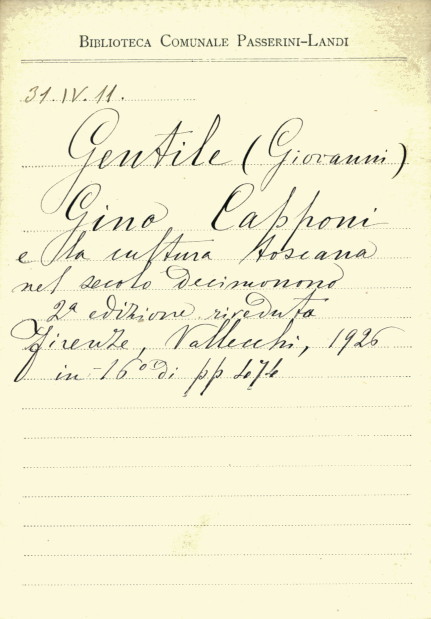 BIBLIOTECA COMUNALE PASSERINI-LANDI
31.IV.11.
Gentile (Giovanni)
Gino Capponi
e la cultura toscana
nel secolo decimonono
2ª edizione riveduta
Firenze, Vallecchi, 1926
in-16° di pp